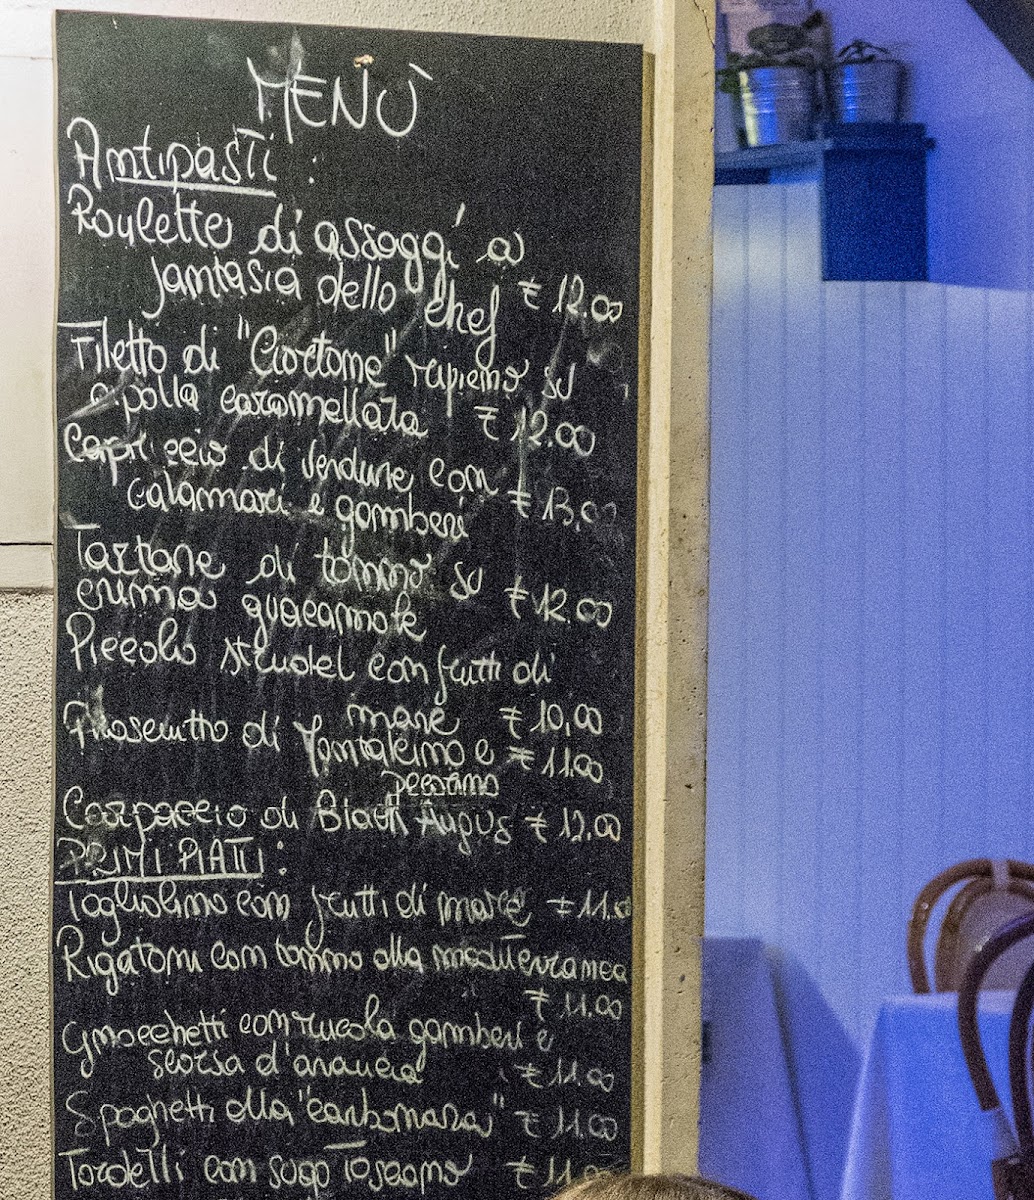 MENÙ
Antipasti :
Roulette di assaggi a
fantasia dello chef € 12.00
Filetto di "Cioctone" ripieno su
cipolla caramellata € 12.00
Capriccio di verdure con
calamari e gamberi € 13,00
Tartare di tonno su
crema guacamole € 12.00
Piccolo strudel con frutti di
mare € 10,00
Prosciutto di Montalcino e € 11.00
pecorino
Carpaccio di Black Angus € 12.00
PRIMI PIATTI :
Tagliolino con frutti di mare € 11.0
Rigatoni con tonno alla mediterranea
€ 11.00
Gnocchetti con rucola gamberi e
scorsa d'arancia € 11.00
Spaghetti alla "carbonara" € 11.00
Tordelli con sugo Toscano € 11.00